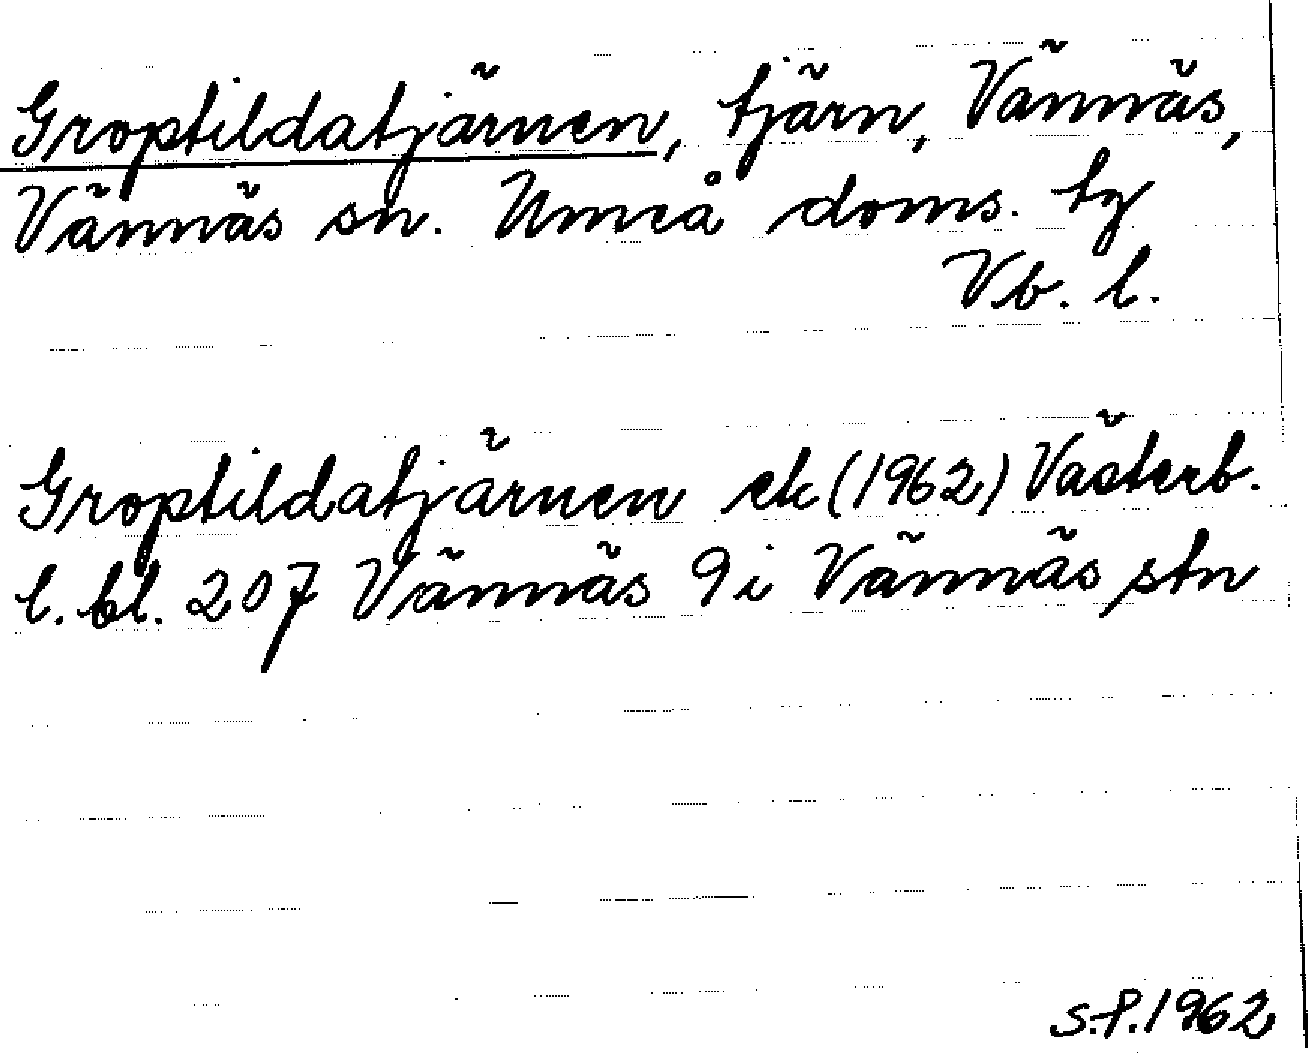 Groptildatjärnen, tjärn, Vännäs,
Vännäs sn. Umeå doms. tg
Vb. l.
Groptildatjärnen ek (1962) Västerb.
l. bl. 207 Vännäs 9i Vännäs stn
S.P. 1962